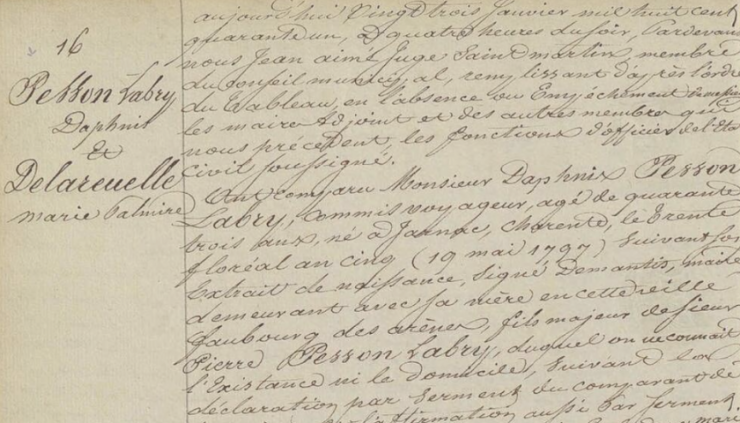 16
Pesson Labry
Daphnis
Et
Delareuelle
marie Palmire
aujourd'hui vingt trois Janvier mil huit cent
quarante un, à quatre heures du soir, Pardevant
nous Jean aimé Juge Saint martin, membre
du Conseil municipal, remplissant d'après l'ordre
du Tableau, en l'absence ou Empêchement de messieurs
les maire Adjoint et des autres membres qui
nous précèdent, les fonctions d'officier de l'Etat
civil soussigné.
Ont comparu Monsieur Daphnis Pesson
Labry, Commis voyageur, agé de quarante
trois ans, né à Jarnac, charente, le trente
floréal an cinq (19 mai 1797) suivant son
Extrait de naissance, signé Demantis, maire
demeurant avec sa mère en cette ville
faubourg des arènes, fils majeur de sieur
Pierre Pesson Labry, duquel on ne connait
l'Existance ni le domicile, suivant la
déclaration par serment du comparant de
l'affirmation aussi Par serment